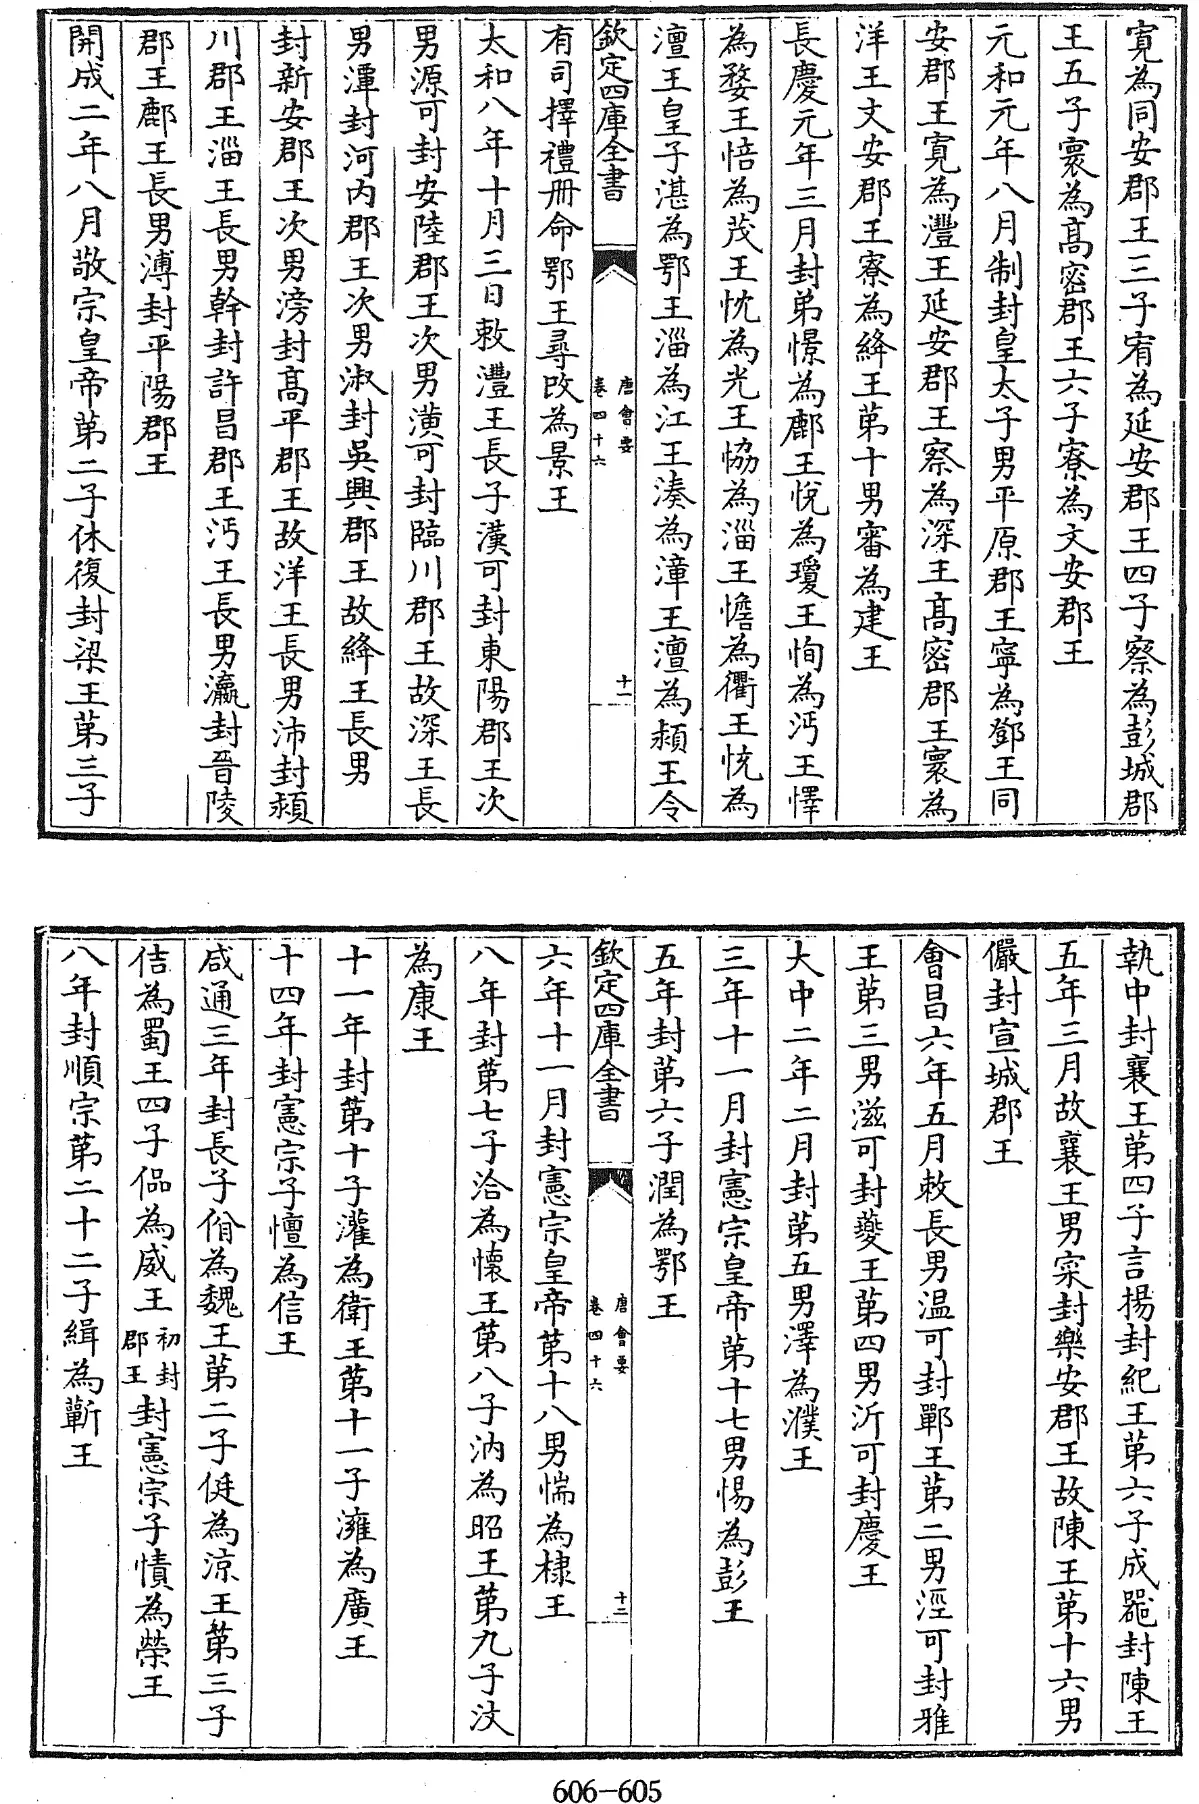 寛為同安郡王三子宥為延安郡王四子察為彭城郡
王五子寰為髙密郡王六子寮為文安郡王
元和元年八月制封皇太子男平原郡王寧為鄧王同
安郡王寛為灃王延安郡王察為深王髙密郡王寰為
洋王文安郡王寮為絳王第十男審為建王
長慶元年三月封弟憬為鄜王悅為瓊王恂為沔王懌
為婺王愔為茂王忱為光王協為淄王憺為衢王㤝為
澶王皇子湛為鄂王淄為江王湊為漳王澶為潁王令
欽定四庫全書
唐會要
卷四十六
十一
有司擇禮冊命 鄂王尋改為景王
太和八年十月三日敕灃王長子漢可封東陽郡王次
男源可封安陸郡王次男潢可封臨川郡王故深王長
男潭封河内郡王次男淑封吳興郡王故絳王長男
封新安郡王次男滂封髙平郡王故洋王長男沛封潁
川郡王淄王長男幹封許昌郡王沔王長男瀛封晉陵
郡王鄜王長男溥封平陽郡王
開成二年八月敬宗皇帝第二子休復封梁王第三子
執中封襄王第四子言揚封紀王第六子成噐封陳王
五年三月故襄王男寀封樂安郡王故陳王第十六男
儼封宣城郡王
會昌六年五月敕長男温可封鄆王第二男涇可封雅
王第三男滋可封䕫王第四男沂可封慶王
大中二年二月封第五男澤為濮王
三年十一月封憲宗皇帝第十七男惕為彭王
五年封第六子潤為鄂王
欽定四庫全書
唐會要
卷四十六
十二
六年十一月封憲宗皇帝第十八男惴為棣王
八年封第七子洽為懷王第八子汭為昭王第九子汶
為康王
十一年封第十子灌為衛王第十一子澭為廣王
十四年封憲宗子憻為信王
咸通三年封長子佾為魏王第二子侹為涼王第三子
佶為蜀王四子偘為威王 初封郡王 封憲宗子憤為榮王
八年封順宗第二十二子緝為蘄王
606-605